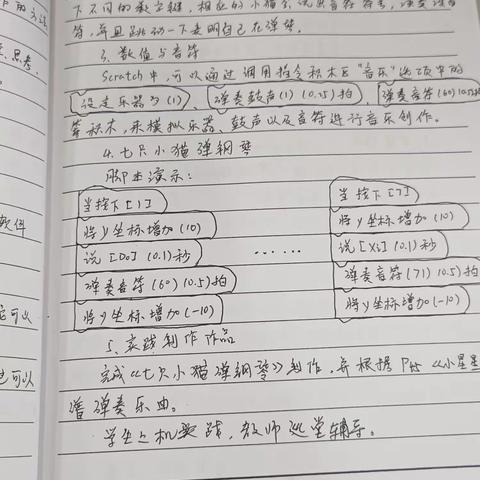 下不同的数字键，相应的小猫会说出音符
符，并且跳动一下表明自己在弹琴。
3、数值与音符
Scratch中，可以通过调用指令积木区"音乐"选项中的
设定乐器为(1)、弹奏鼓声(1)(0.25)拍 弹奏音符(60)(0.5)拍
等积木，来模拟乐器、鼓声以及音符进行音乐创作。
4.七只小猫弹钢琴
脚本演示：
当按下[1] 当按下[7]
将y坐标增加(10) 将y坐标增加(10)
说[Do](0.1)秒 …… 说[Xi](0.1)秒
弹奏音符(60)(0.5)拍 弹奏音符(71)(0.5)拍
将y坐标增加(-10) 将y坐标增加(-10)
5、实践制作作品
完成《七只小猫弹钢琴》制作，并根据P45《小星星
谱弹奏乐曲。
学生上机实战，教师巡堂辅导。
思考，
软件
可以
也可以